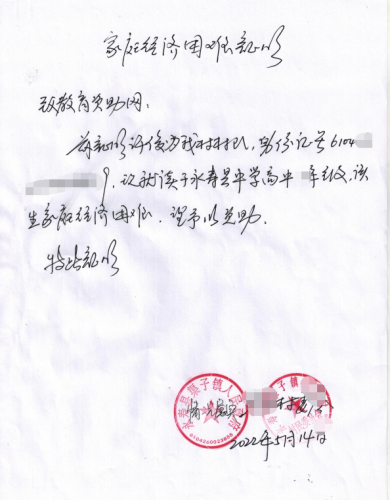 家庭经济困难证明
致教育资助网：
兹证明许俊为我村村民，身份证号6104
9，现就读于永寿县中学高中 年级，该
生家庭经济困难，望予以资助。
特此证明
情况属实
2022年5月14日